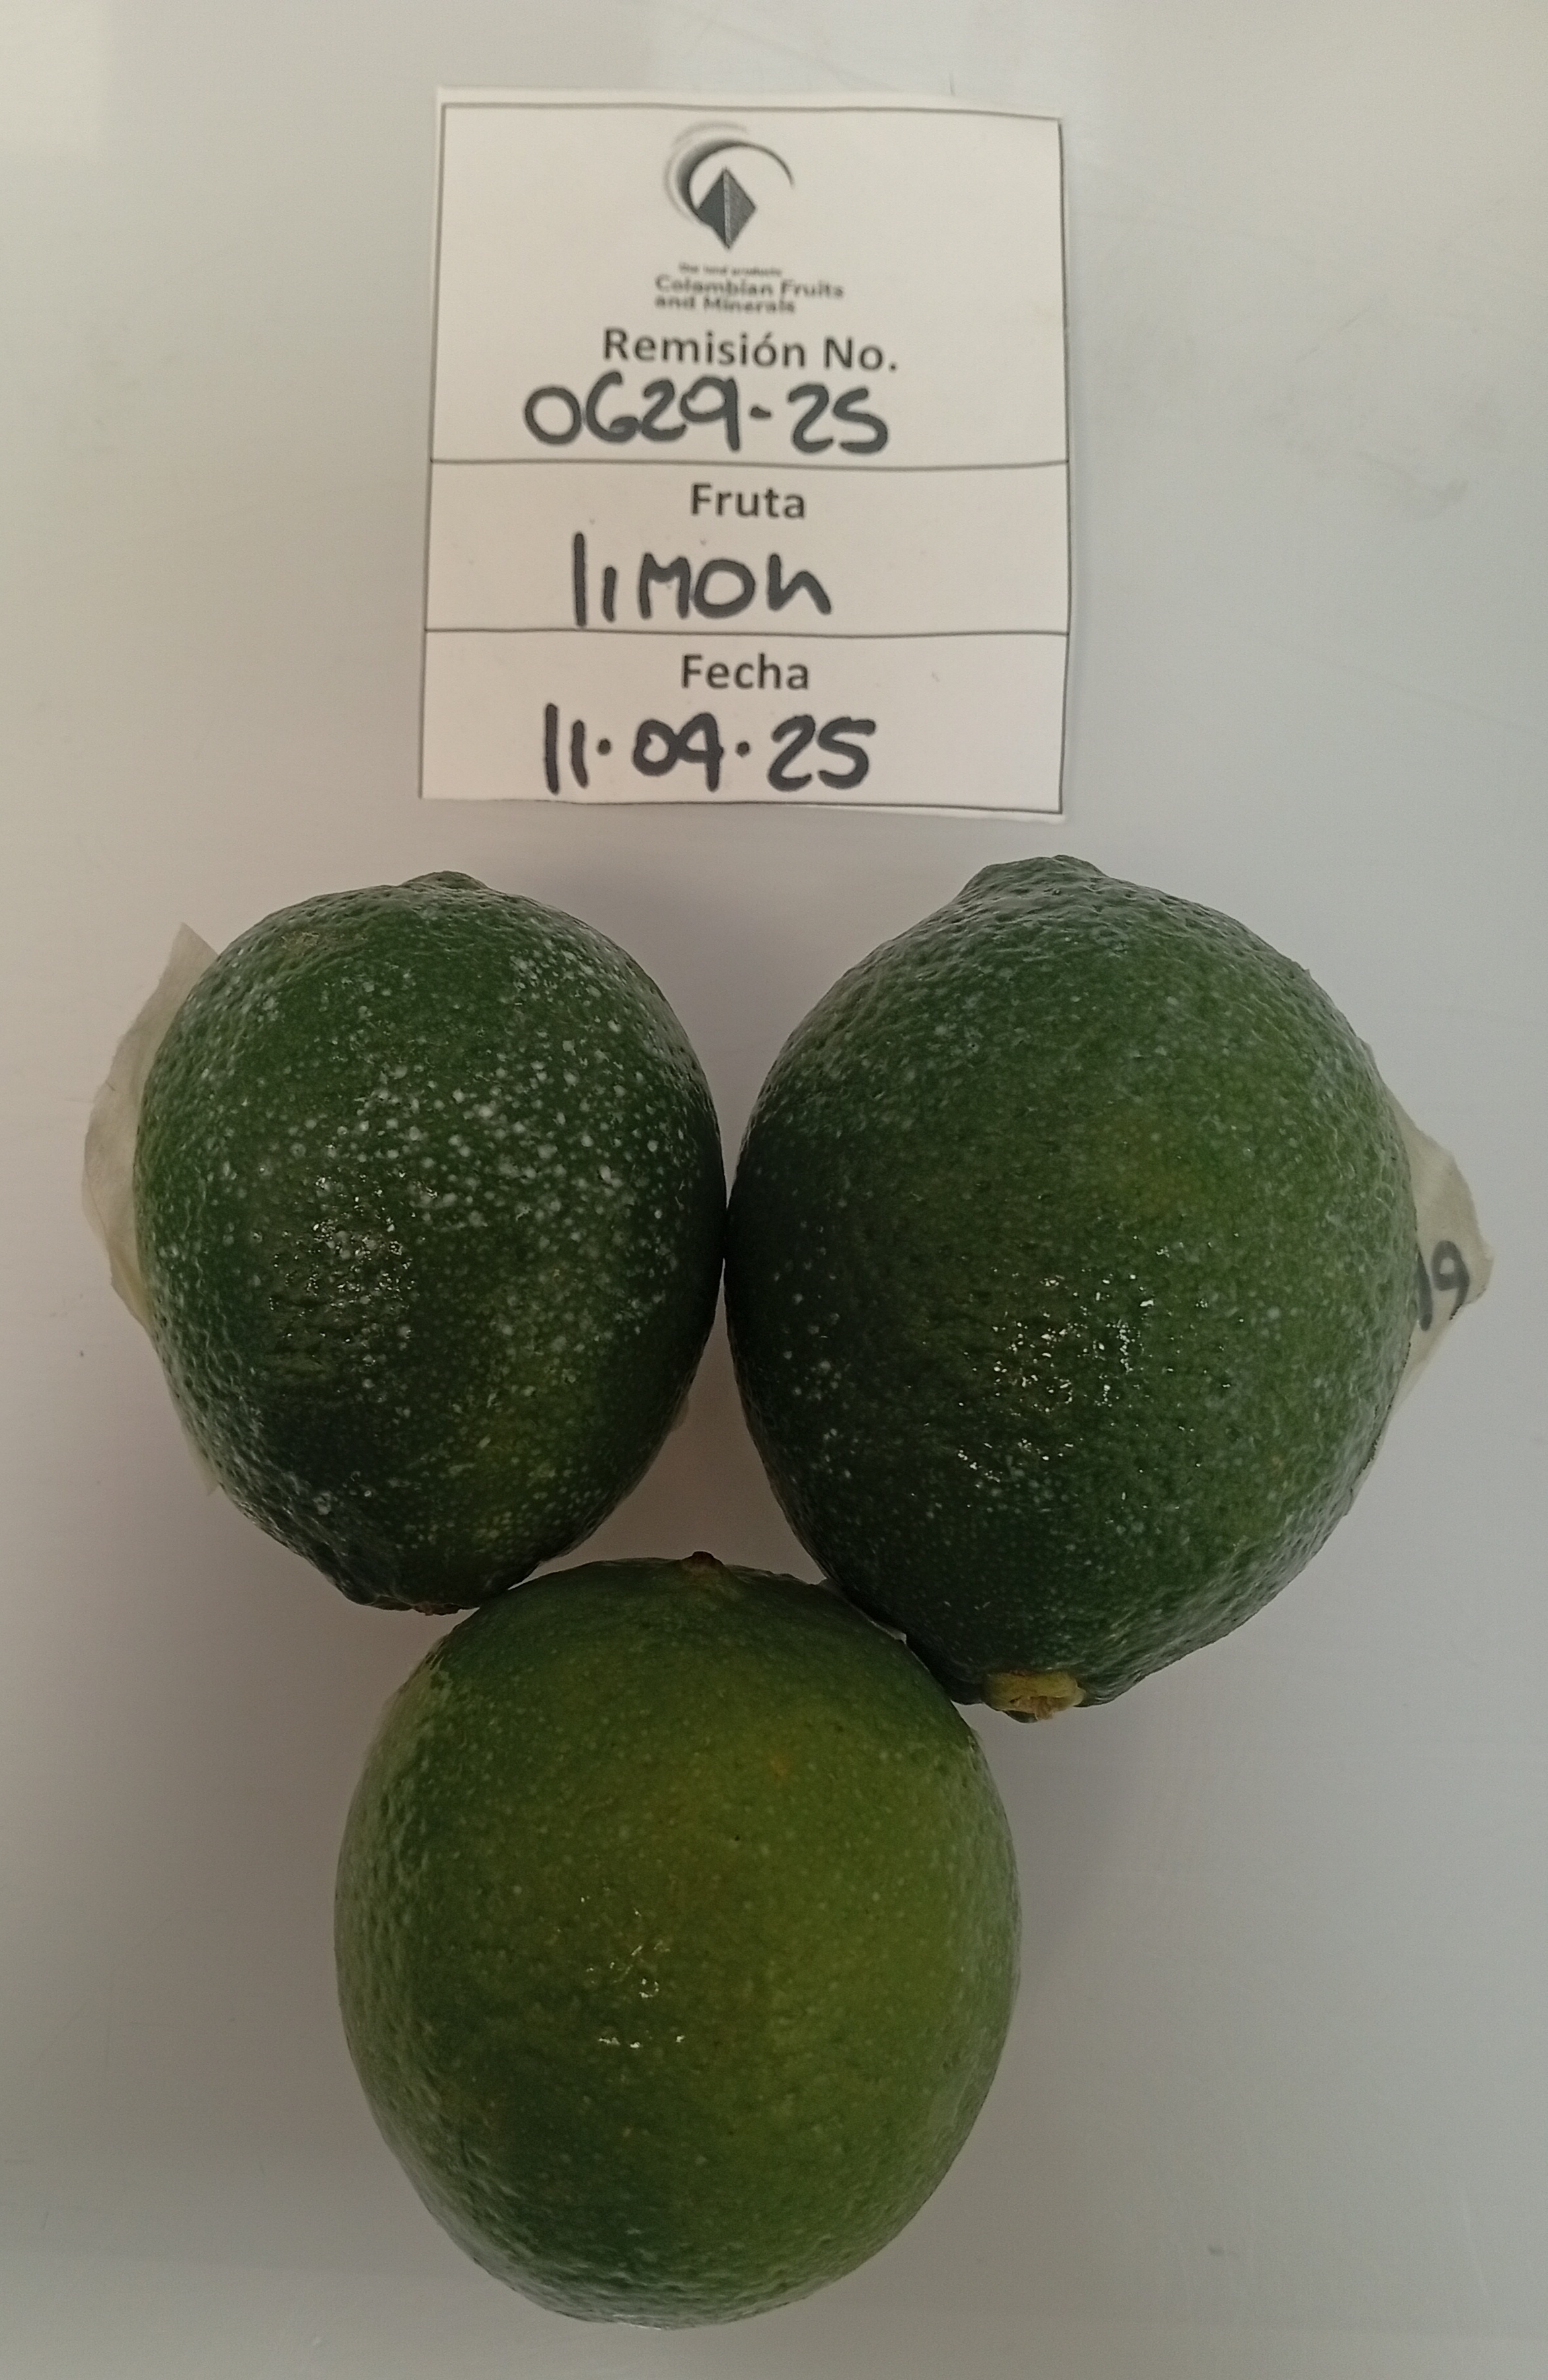 Our land products
Colombian Fruits
and Minerals
Remisión No.
0629-25
Fruta
limon
Fecha
11.09.25
19